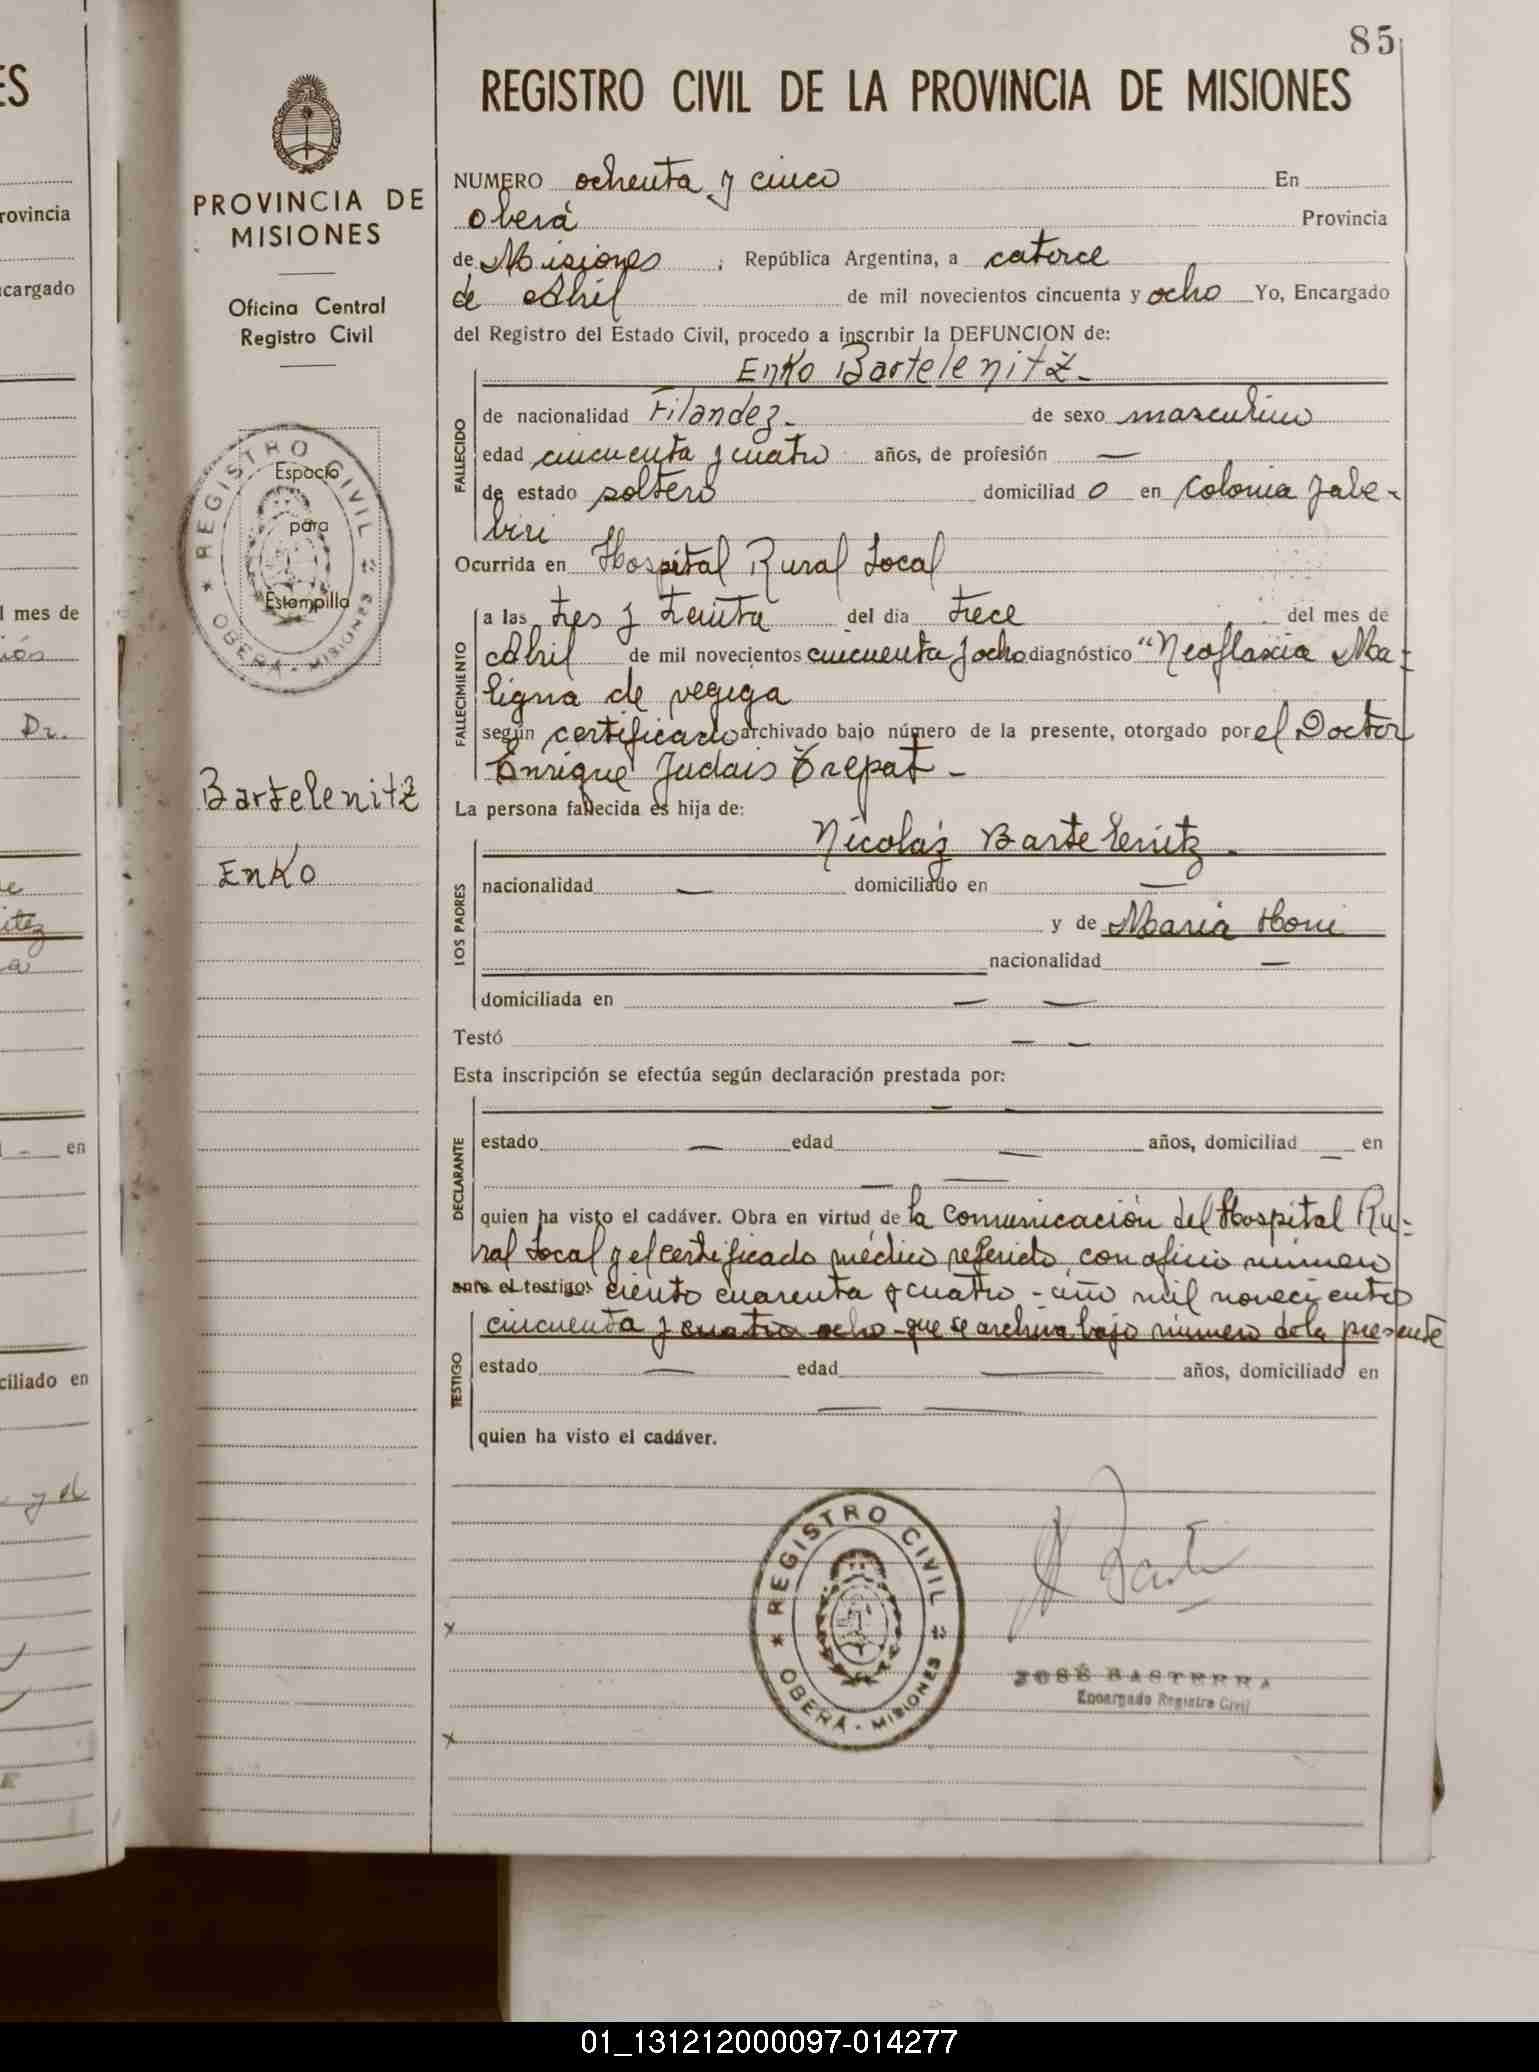 85
REGISTRO CIVIL DE LA PROVINCIA DE MISIONES
PROVINCIA DE
MISIONES
Oficina Central
Registro Civil
REGISTRO CIVIL
OBERÁ - MISIONES
Espacio
para
Estampilla
Bartelenitz
Enko
NUMERO ochenta y cinco En
Oberá Provincia
de Misiones, República Argentina, a catorce
de Abril de mil novecientos cincuenta y ocho Yo, Encargado
del Registro del Estado Civil, procedo a inscribir la DEFUNCION de:
Enko Bartelenitz.-
FALLECIDO
de nacionalidad Filandez.- de sexo masculino
edad cincuenta y cuatro años, de profesión —
de estado soltero domiciliad o en Colonia Yabe-
biri
Ocurrida en Hospital Rural Local
FALLECIMIENTO
a las tres y treinta del dia trece del mes de
Abril de mil novecientos cincuenta y ocho diagnóstico "Neoflaxia Ma-
ligna de vegiga
según certificado archivado bajo número de la presente, otorgado por el Doctor
Enrique Judais Trepat.-
La persona fallecida es hija de:
Nicolás Bartelenitz.
LOS PADRES
nacionalidad — domiciliado en —
y de María Honi
nacionalidad —
domiciliada en — —
Testó — —
Esta inscripción se efectúa según declaración prestada por:
— —
DECLARANTE
estado — edad — años, domiciliad — en
— —
quien ha visto el cadáver. Obra en virtud de la comunicación del Hospital Ru-
ral Local y el certificado médico referido, con oficio número
ante el testigo: ciento cuarenta y cuatro - año mil novecientos
cincuenta y cuatro ocho - que se archiva bajo número de la presente
TESTIGO
estado — edad — años, domiciliado en
— —
quien ha visto el cadáver.
REGISTRO CIVIL
OBERÁ - MISIONES
JOSÉ BASTERRA
Encargado Registro Civil
x
x
ES
rovincia
ncargado
l mes de
Dr.
en
ciliado en
y el
01_131212000097-014277